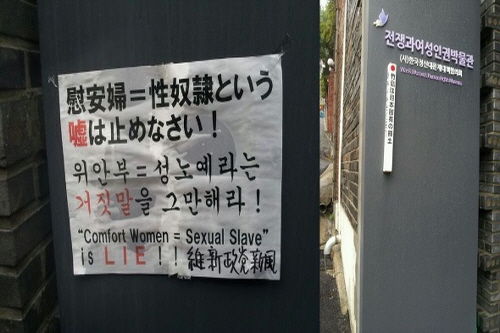 慰安婦=性奴隷という
嘘は止めなさい!
위안부=성노예라는
거짓말을 그만해라!
"Comfort Women = Sexual Slave"
is LIE!! 維新政党新風
전쟁과여성인권박물관
(사)한국정신대문제대책협의회
竹島は日本固有の領土